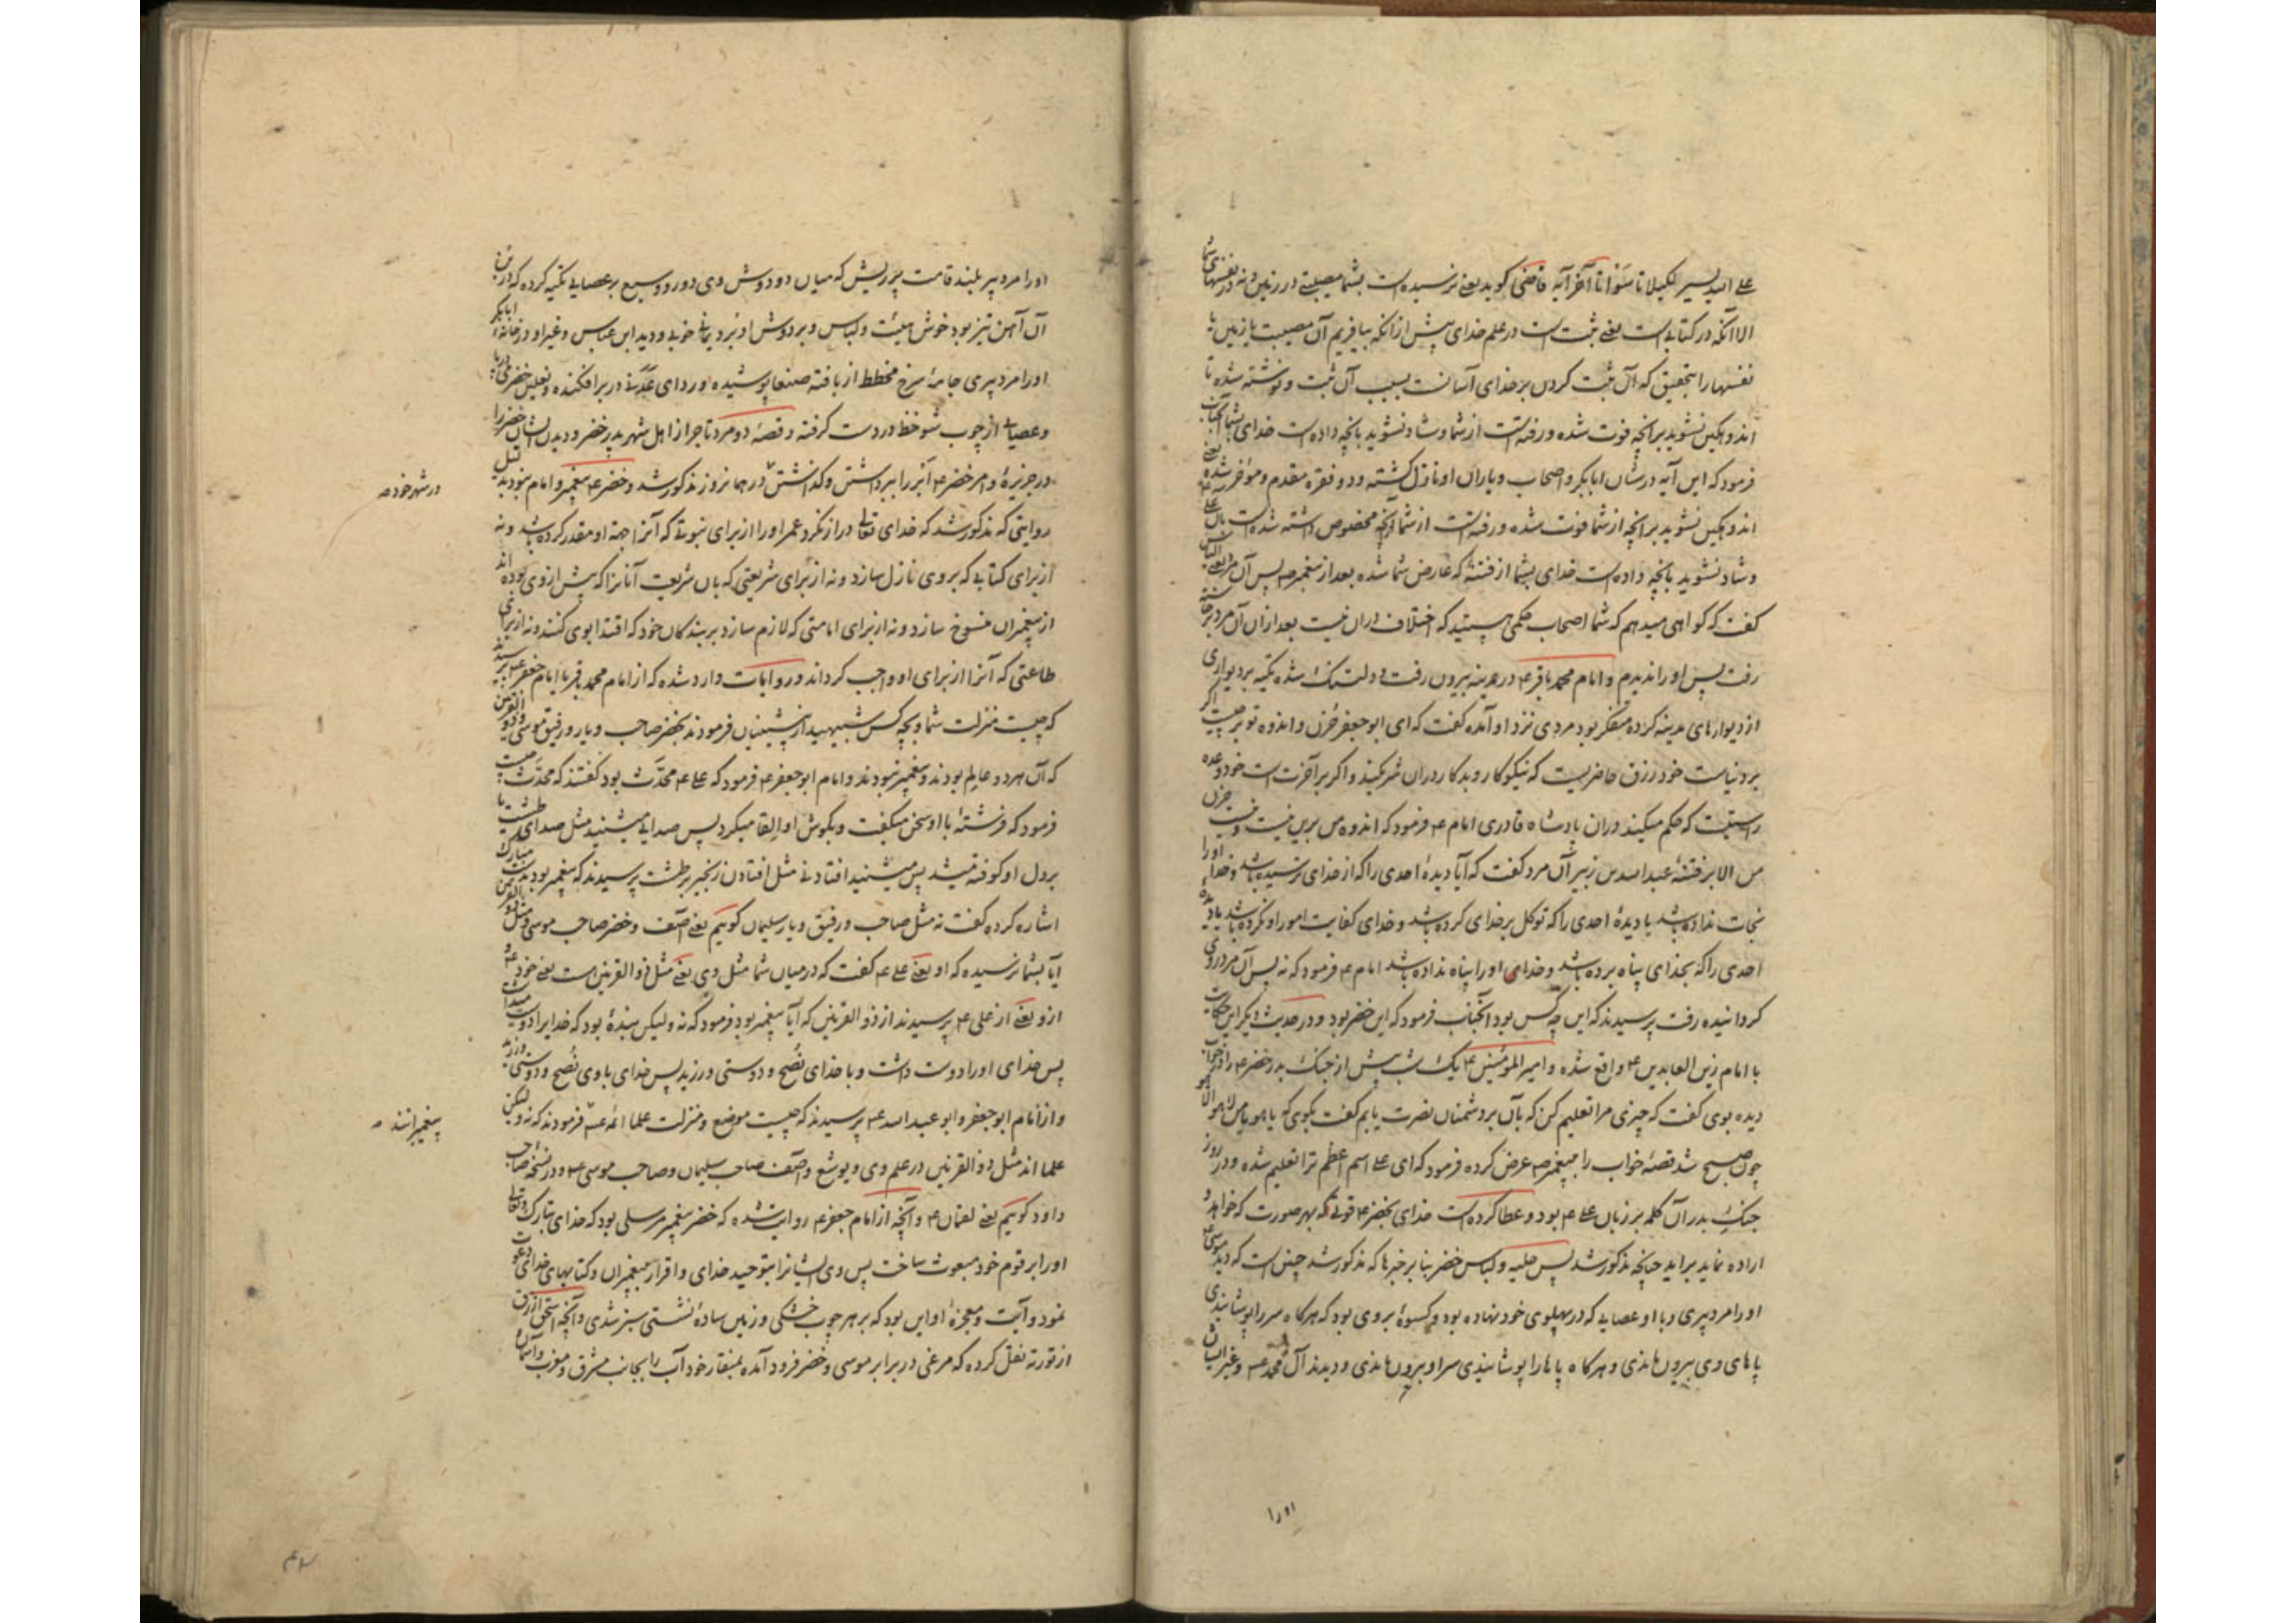 علی الله یسیر لکیلا تأسوا تا آخر آیه قاضی کوید یعنے نرسیده است بشما مصیبتے در زمین و نه در نفسهای شما
الا آنکه در کتابے است یعنے ثبت است در علم خدای پیش از انکه بیافریم آن مصیبت یا زمین یا
نفسها را بتحقیق که آن ثبت کردن بر خدای آسانست بسبب آن ثبت و نوشته شده تا
اندوهکین نشوید بر آنچه فوت شده و رفته است از شما و شاد نشوید بآنچه داده است خدای بشما آنجناب
فرمود که این آیه در شان ابابکر و اصحاب و یاران او نازل کشته و دو فقره مقدم و موخر شده یعنے
اندوهکین نشوید بر آنچه از شما فوت شده و رفته است از شما آنچه مخصوص داشته شده است بآن علی ع
و شاد نشوید بآنچه داده است خدای بشما از فتنهٔ که عارض شما شده بعد از پیغمبر ص پس آن مرد
کفت که کواهی میدهم که شما اصحاب حکمی هستید که اختلاف دران نیست بعد ازان آن مرد برخاسته
رفت پس او را ندیدم و امام محمد باقر ع در مدینه بیرون رفت و دلتنک شده تکیه بر دیواری
از دیوارهای مدینه کرده متفکر بود مردی نزد او آمده کفت که ای ابو جعفر حُزن و اندوه تو بر چیست اکر
بر دنیاست خود رزق حاضریست که نیکوکار و بدکار دران شریکند و اکر بر آخرت است خود وعده
راستیست که حکم میکند دران پادشاه قادری امام ع فرمود که اندوه من برین نیست و نیست حزن
من الا بر فتنهٔ عبدالله بن زبیر آن مرد کفت که آیا دیدهٔ احدی را که از خدای ترسیده باشد و خدا او را
نجات نداده باشد یا دیدهٔ احدی را که توکل بر خدای کرده باشد و خدای کفایت امور او نکرده باشد یا دیدهٔ
احدی را که بخدای پناه برده باشد و خدای او را پناه نداده باشد امام ع فرمود که نه پس آن مرد روی
کردانیده رفت پرسیدند که این چه کس بود آنجناب فرمود که این خضر بود و در حدیث دیکر این حکایت
با امام زین العابدین ع واقع شده و امیر المؤمنین ع یک شب پیش از جنک بدر خضر ع را در خواب
دیده بوی کفت که چیزی مرا تعلیم کن که بآن بر دشمنان نصرت یابم کفت بکوی که یا هو یا من لا هو الا هو
چون صبح شد قصهٔ خواب را بپیغمبر ص عرض کرده فرمود که ای علی اسم اعظم ترا تعلیم شده و در روز
جنکِ بدر آن کلمه بر زبان علی ع بود و عطا کرده است خدای بخضر ع قوتی که بهر صورت که خواهد و
اراده نماید براید چنانچه مذکور شد پس حلیه و لباس خضر بنا بر خبرها که مذکور شد چنین است که دید موسی ع
او را مرد پیری و با او عصایی که در پهلوی خود نهاده بود و کسوهٔ بر وی بود که هرکاه سر را پوشانیدی
پاهای وی بیرون ماندی و هرکاه پاها را پوشانیدی سر او بیرون ماندی و دیدند آل محمد ع و غیر ایشان
او را
او را مرد پیر بلند قامت پر ریش که میان دو دوش وی دور و وسیع بر عصایے تکیه کرده که در بن
آن آهن تیز بود خوش هیئت و لباس و بر دوش او بُرد یمانے خوبے و دید ابن عباس و غیر او در خانه ابابکر
او را مرد پیری جامهٔ سرخ مخطط از بافته صنعا پوشیده و ردای عَدَنے در بر افکنده و نعلین حضرمی در پا
و عصایے از چوب شوخط در دست کرفته و قصهٔ دو مرد تاجر از اهل شهر پدر خضر و دیدن ایشان خضر را
در جزیرهٔ و امر خضر ع ابر را ببرداشتن و کذاشتن در همانروز مذکور شد و خضر ع پیغمبر و امام نبود بدلیل
در شهر خود ص
روایتی که مذکور شد که خدای تعالی دراز نکرد عمر او را از برای نبوتے که آنرا جهة او مقدر کرده باشد و نه
از برای کتابے که بر وی نازل سازد و نه از برای شریعتی که بآن شریعت آنانرا که پیش از وی بوده اند
از پیغمبران منسوخ سازد و نه از برای امامتی که لازم سازد بر بندکان خود که اقتدا بوی کنند و نه از برای
طاعتی که آنرا از برای او واجب کرداند و روایات وارد شده که از امام محمد باقر یا امام جعفر ع پرسیدند
که چیست منزلت شما و بچه کس شبیهید از پیشینیان فرمودند بخضر صاحب و یار و رفیق موسی و ذو القرنین
که آن هردو عالِم بودند و پیغمبر نبودند و امام ابو جعفر ع فرمود که علی ع محدَّث بود کفتند که محدَّث چیست
فرمود که فرشتهٔ با او سخن میکفت و بکوش او القا میکرد پس صدایے میشنید مثل صدای طشت یا
بر دل او کوفته میشد پس میشنید افتادنے مثل افتادن زنجیر بر طشت پرسیدند که پیغمبر بود بدست مبارک
اشاره کرده کفت نه مثل صاحب و رفیق و یار سلیمان کویم یعنے آصف و خضر صاحب موسی و مثل ذو القرنین
آیا بشما نرسیده که او یعنے علی ع کفت که در میان شما مثل وی یعنے مثل ذو القرنین است یعنے خود ع و
ازو یعنے از علی ع پرسیدند از ذو القرنین که آیا پیغمبر بود فرمود که نه ولیکن بندهٔ بود که خدایرا دوست میداشت
پس خدای او را دوست داشت و با خدای نُصح و دوستی ورزید پس خدای با وی نُصح و دوستی ورزید
و از امام ابو جعفر و ابو عبد الله ع پرسیدند که چیست موضع و منزلت علما ائمه ع فرمودند که نه ولیکن
پیغمبرانند ص
علما اند مثل ذو القرنین در علم وی و یوشع و آصف صاحب سلیمان و صاحب موسی ع و در نسخه صاحب
داود کویم یعنے لقمان ع و آنچه از امام جعفر ع روایت شده که خضر پیغمبر مرسلی بود که خدای تبارک و تعالی
او را بر قوم خود مبعوث ساخت پس وی ایشانرا بتوحید خدای و اقرار پیغمبران و کتابهای خدای دعوت
نمود و آیت و معجزهٔ او این بود که بر هر چوب خشکی و زمین سادهٔ نشستی سبز شدی و آنچه اسحق ازرق
از توریة نقل کرده که مرغی در برابر موسی و خضر فرود آمده بمنقار خود آب را بجانب مشرق و مغرب و آسمان و